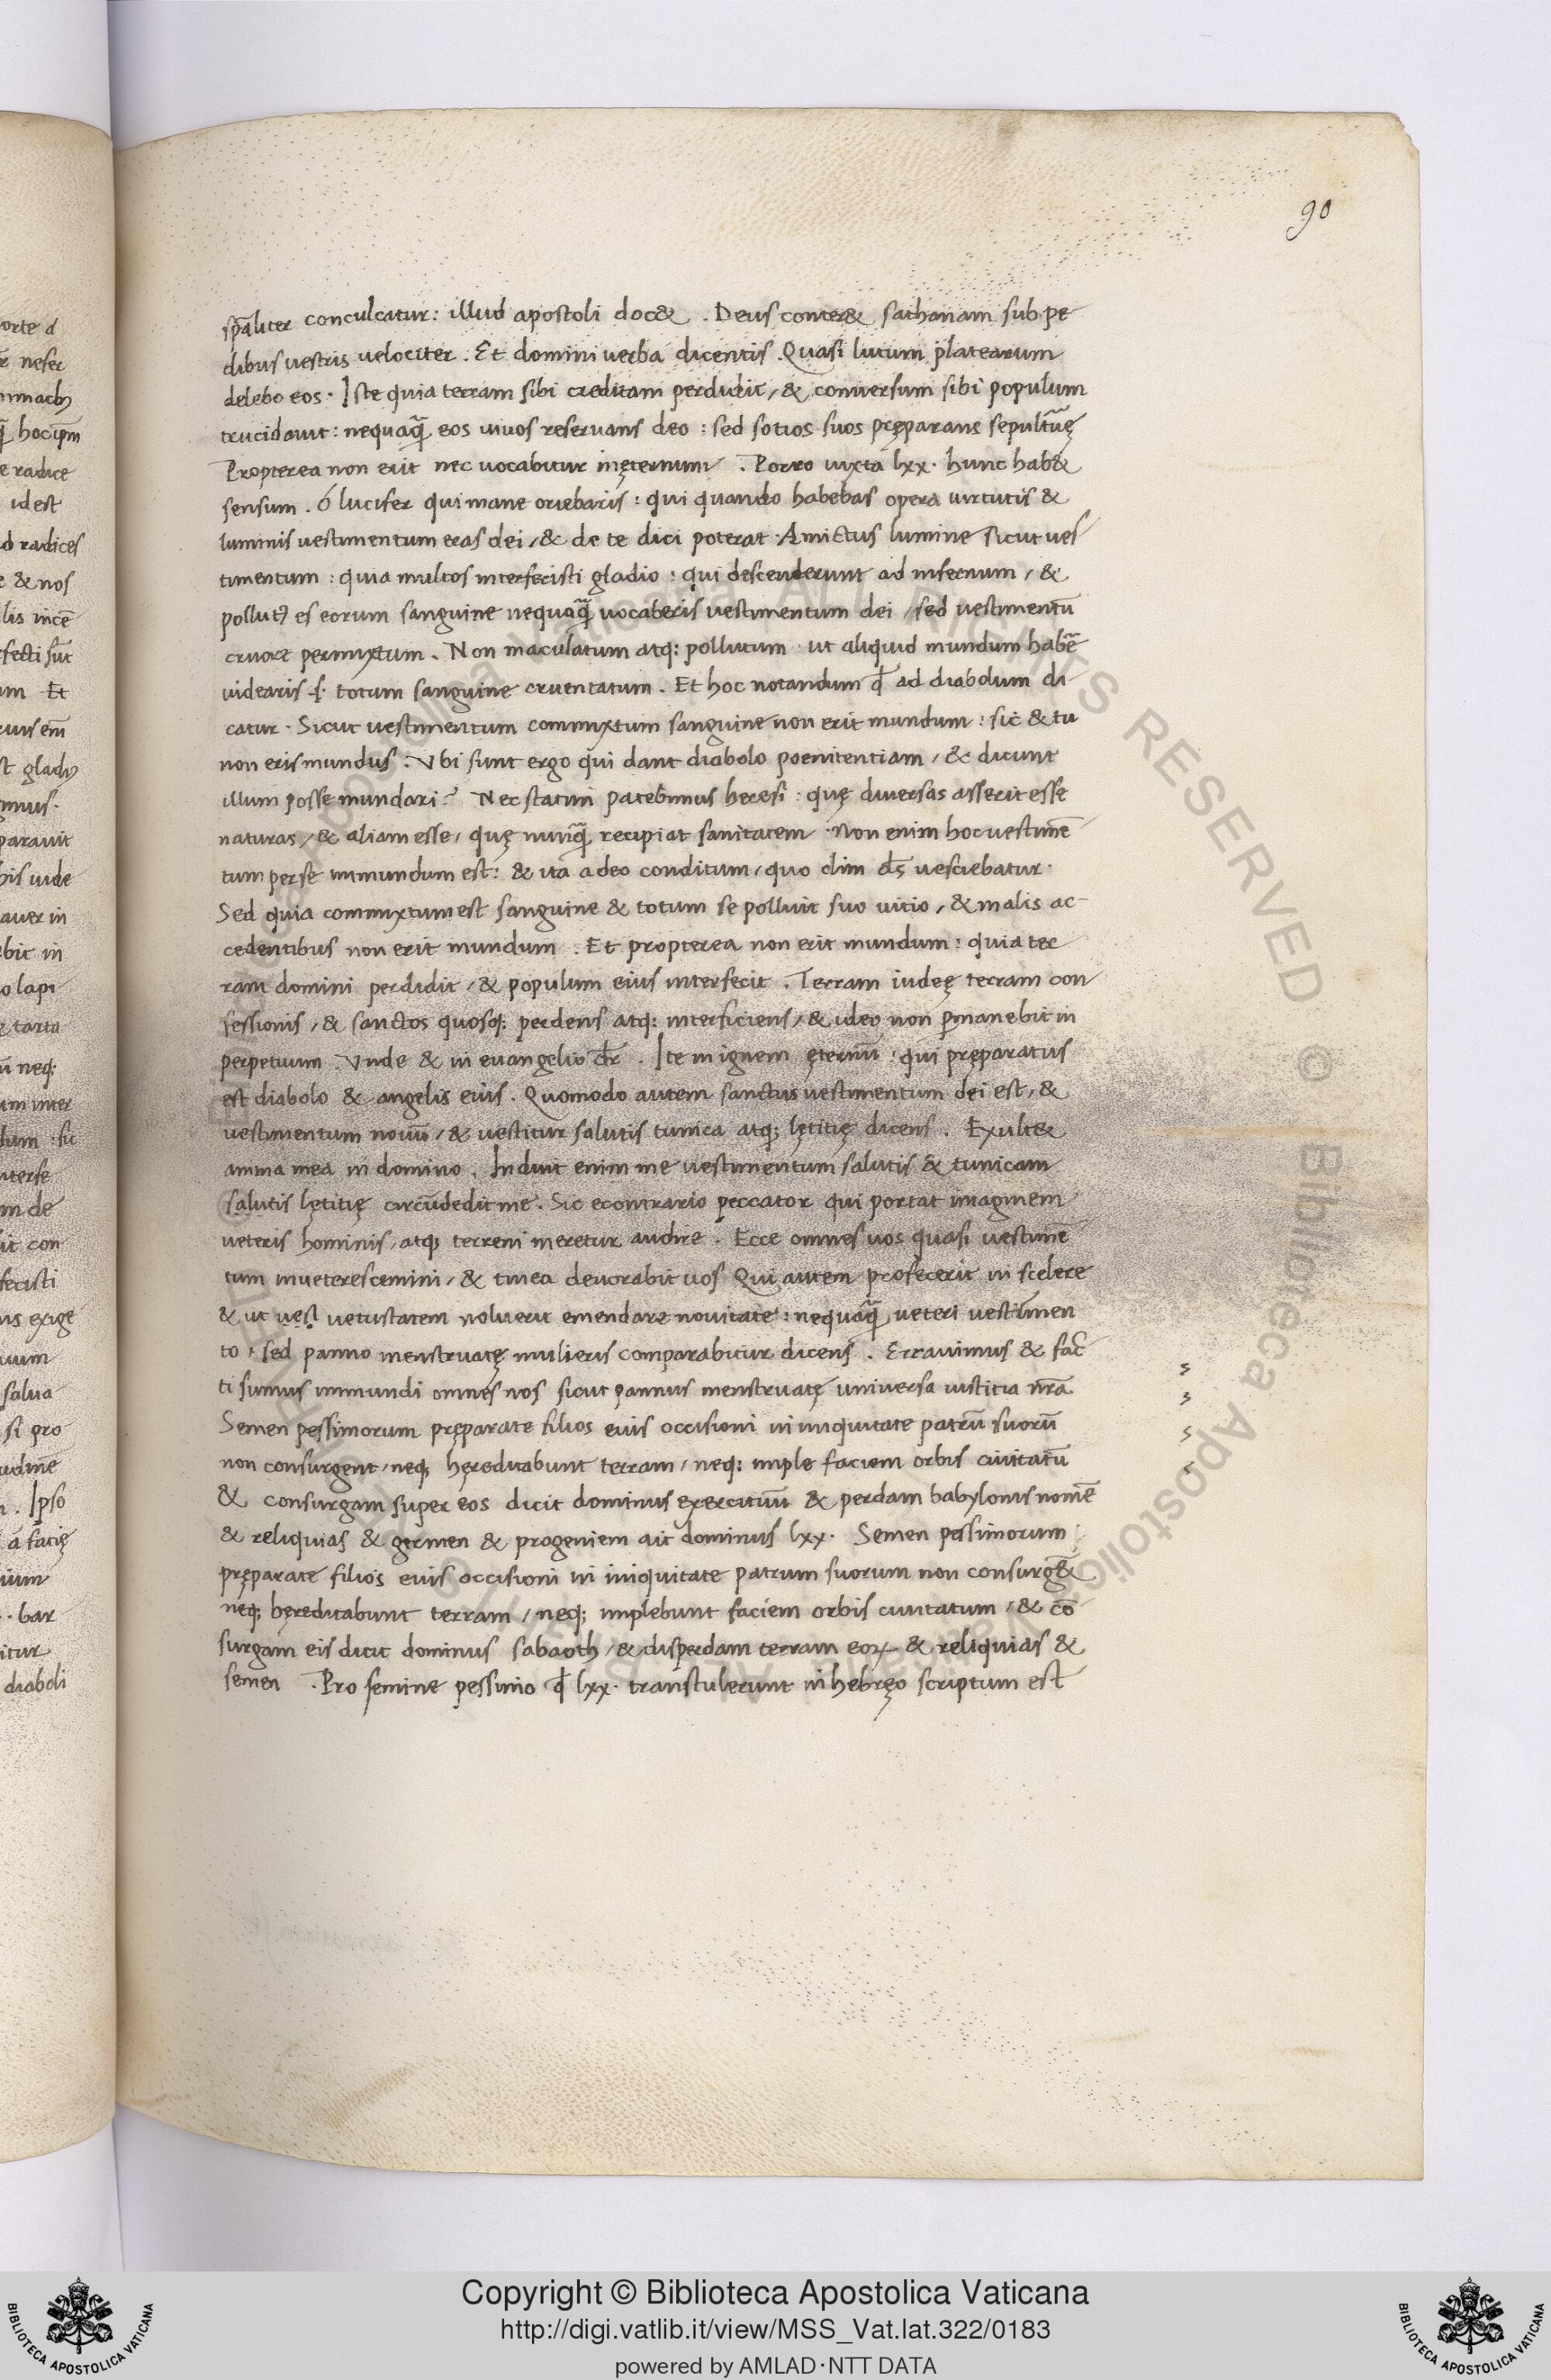 90
sp̄aliter conculcatur: illud apostoli doc&. Deus conter& sathanam sub pe
dibus uestris uelociter. Et domini uerba dicentis. Quasi lutum platearum
delebo eos. Iste quia terram sibi creditam perdidit, & conuersum sibi populum
trucidauit: nequaq̄ eos uiuos reseruans deo: sed sotios suos pręparans sepultūę
Propterea non erit nec uocabitur inęternum. Porro iuxta lxx. hunc hab&
sensum. ó lucifer qui mane oriebaris: qui quando habebas opera uirtutis &
luminis uestimentum eras dei, & de te dici poterat. Amictus lumine sicut ues
timentum: quia multos interfecisti gladio: qui descenderunt ad infernum, &
pollutꝰ es eorum sanguine nequaq̄ uocaberis uestimentum dei, sed uestimentū
cruore permixtum. Non maculatum atq; pollutum ut aliquid mundum habē
uidearis. s; totum sanguine cruentatum. Et hoc notandum qđ ad diabolum di
catur. Sicut uestimentum commixtum sanguine non erit mundum: sic & tu
non eris mundus. Vbi sunt ergo qui dant diabolo poenitentiam, & dicunt
illum posse mundari? Nec statim patebimus heresi: quę diuersas asserit esse
naturas, & aliam esse, quę nunq̄ recipiat sanitatem. Non enim hoc uestimē
tum per se immundum est: & ita a deo conditum, quo olim ds̄ uesciebatur.
Sed quia commixtum est sanguine & totum se polluit suo uitio, & malis ac-
cedentibus non erit mundum. Et propterea non erit mundum: quia ter
ram domini perdidit, & populum eius interfecit. Terram iudeę terram con
fessionis, & sanctos quosq; perdens atq; interficiens, & ideo non ꝑmanebit in
perpetuum. Vnde & in euangelio dr̄. Ite in ignem ęternū: qui pręparatus
est diabolo & angelis eius. Quomodo autem sanctus uestimentum dei est, &
uestimentum nouū, & uestitur salutis tunica atq; lętitię dicens. Exult&
anima mea in domino. Induit enim me uestimentum salutis & tunicam
salutis lętitię circūdedit me. Sic econtrario peccator qui portat imaginem
ueteris hominis, atq; terreni meretur audire. Ecce omnes uos quasi uestimē
tum inueterescemini, & tinea deuorabit uos Qui autem profecerit in scelere
& ut uetustatem noluerit emendare nouitate: nequaq̄ ueteri uestimen
to, sed panno menstruatę mulieris comparabitur dicens. Errauimus & fac
ti sumus immundi omnes nos sicut pannus menstruatę uniuersa iustitia nr̄a
Semen pessimorum pręparate filios eius occisioni in iniquitate patrū suorū
non consurgent, neq; hęreditabunt terram, neq; imple faciem orbis ciuitatū
& consurgam super eos dicit dominus exercituū & perdam babylonis nomē
& reliquias & germen & progeniem ait dominus lxx. Semen pessimorum
pręparate filios euis occisioni in iniquitate patrum suorum non consurg&
neq; hęreditabunt terram, neq; implebunt faciem orbis ciuitatum, & cō
surgam eis dicit dominus sabaoth, & disperdam terram eoꝝ & reliquias &
semen. Pro semine pessimo qđ lxx. transtulerunt in hebręo scriptum est
Copyright © Biblioteca Apostolica Vaticana
http://digi.vatlib.it/view/MSS_Vat.lat.322/0183
powered by AMLAD·NTT DATA